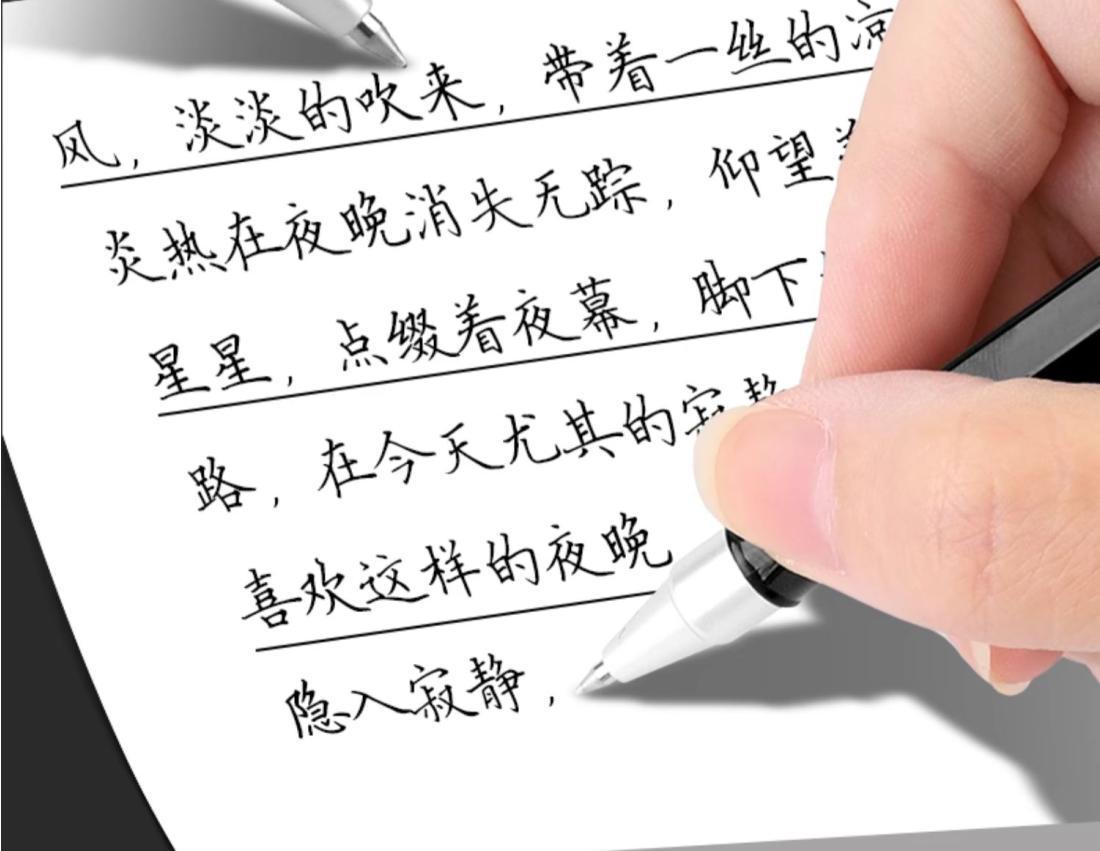 风，淡淡的吹来，带着一丝的凉
炎热在夜晚消失无踪，仰望
星星，点缀着夜幕，脚下
路，在今天尤其的寂静
喜欢这样的夜晚
隐入寂静，